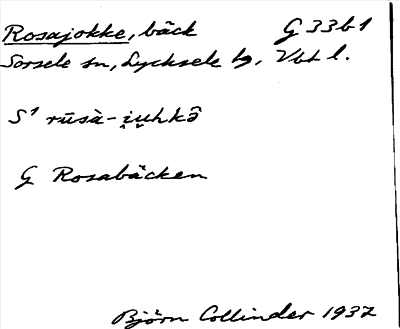 Rosajokke, bäck G 33b1
Sorsele sn, Lycksele lg, Vbt l.
S¹ rūsà-i̯u̯hkô
G Rosabäcken
Björn Collinder 1937